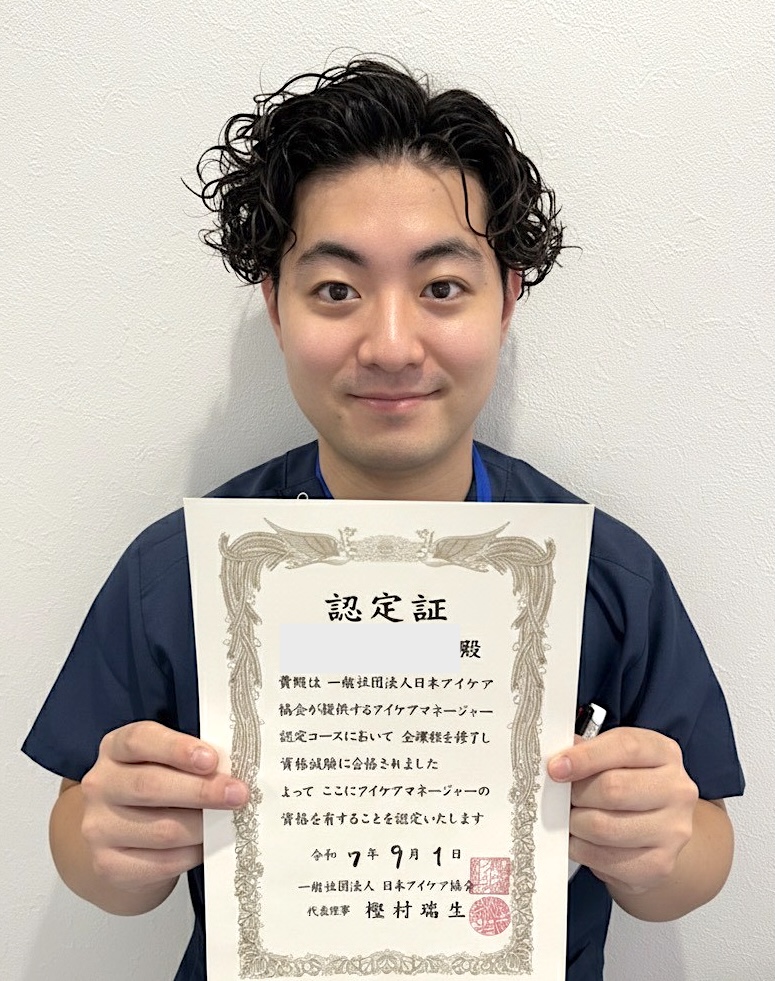 認定証
殿
貴殿は 一般社団法人日本アイケア
協会が提供するアイケアマネージャー
認定コースにおいて 全課程を修了し
資格試験に合格されました
よって ここにアイケアマネージャーの
資格を有することを認定いたします
令和 7年 9月 1日
一般社団法人 日本アイケア協会
代表理事 樫村瑞生